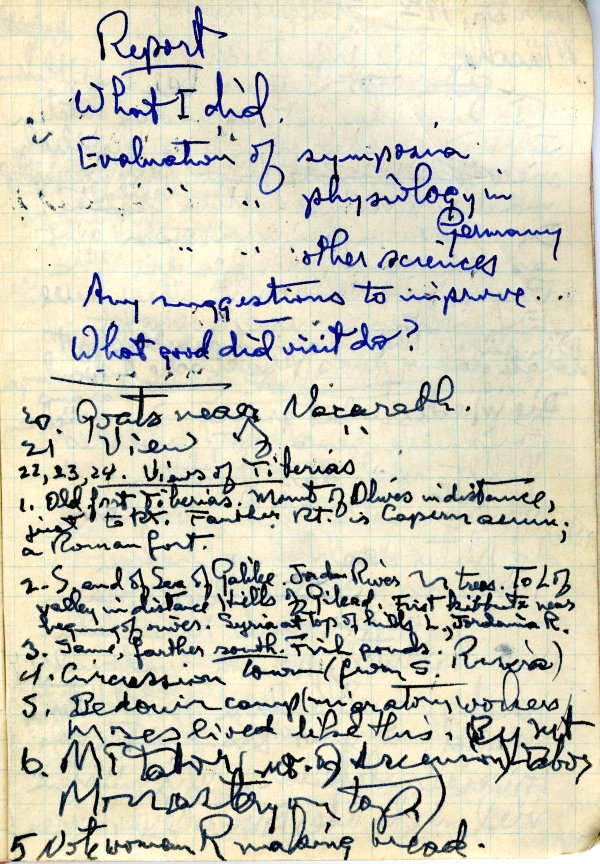 Report
What I did.
Evaluation of symposia
" " physiology in
Germany
" " other sciences
Any suggestions to improve...
What good did visit do?
20. Goats near Nazareth.
21 View "
22, 23, 24. Views of Tiberias
1. Old fort Tiberias. Mount of Olives in distance,
just to Rt. Farther Rt. is Capernaum;
a Roman fort.
2. S. end of Sea of Galilee. Jordan River in trees. To L of
valley in distance Hills of Gilead. First kibbutz near
beginning of river. Syria at top of hills L., Jordania R.
3. Same, farther south. Fish ponds.
4. Circassian town (from S. Russia)
5. Bedouin camp (migratory workers
Moses lived like this. By
6. Mt Tabor (Mt. of Ascension)
Monastery on top)
5 Note woman R making bread.